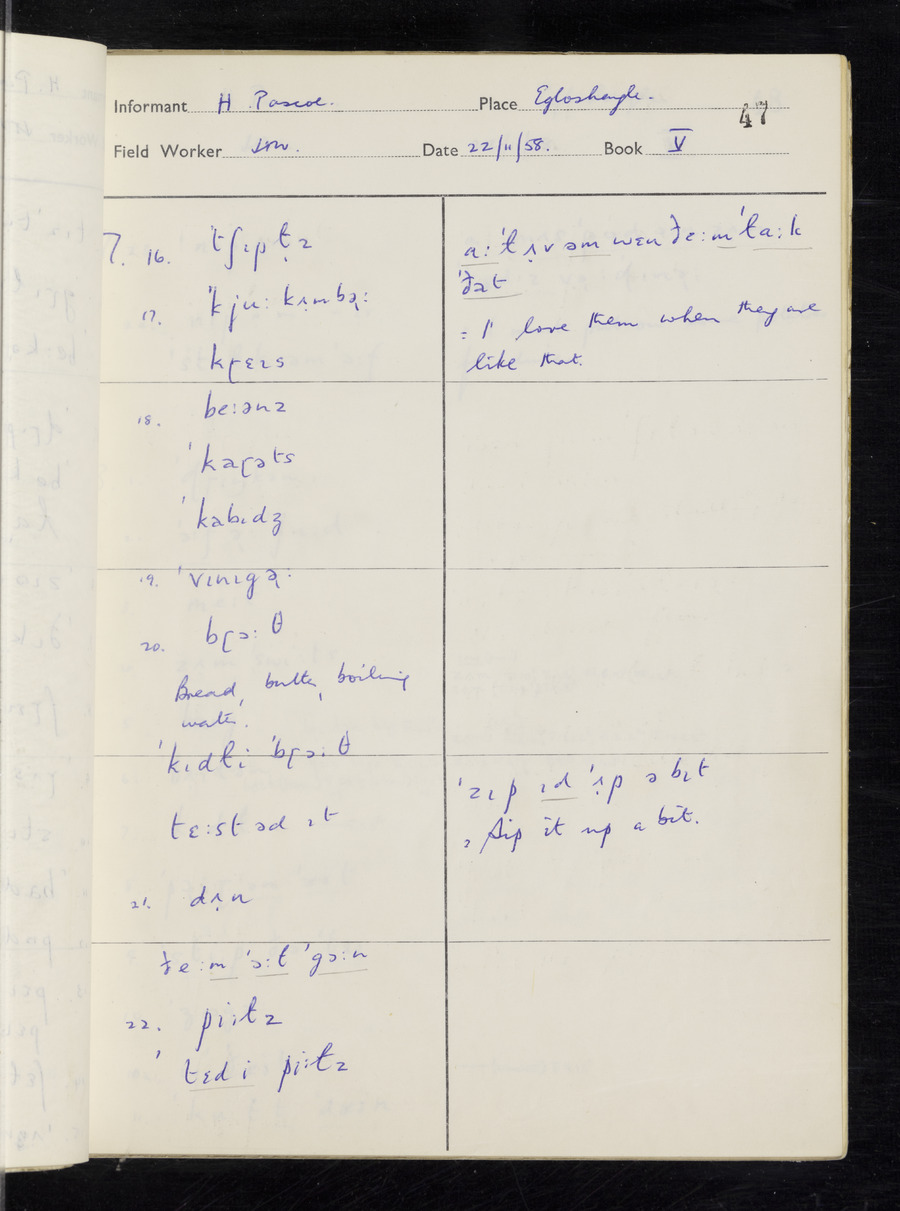 Informant H. Pascoe. Place Egloshayle. 47
Field Worker Date 22/11/58. Book V
7. 16. ˈtʃɪpt̩z
17. ˈkjuːkʌ̣mbəɽː
kɽɛɪs
18. beːənz
ˈkaɽəts
ˈkabɪdʒ
19. ˈvɪnɪgəɽː
20. bɽɔːθ
Bread, butter, boiling
water.
ˈkɪdɫi ˈbɽɔːθ
tɛːstəd ɪt
21. dʌ̣n
ðeːm ˈɔːt ˈgɔːn
22. piːtz
ˈtɛdi piːtz
aːˈɫʌ̣vəm wɛn ðɛːmˈɫaːk
ˈðat
= I love them when they are
like that.
ˈzɪp ɪd ˈʌ̣p ə bɪt
= Sip it up a bit.